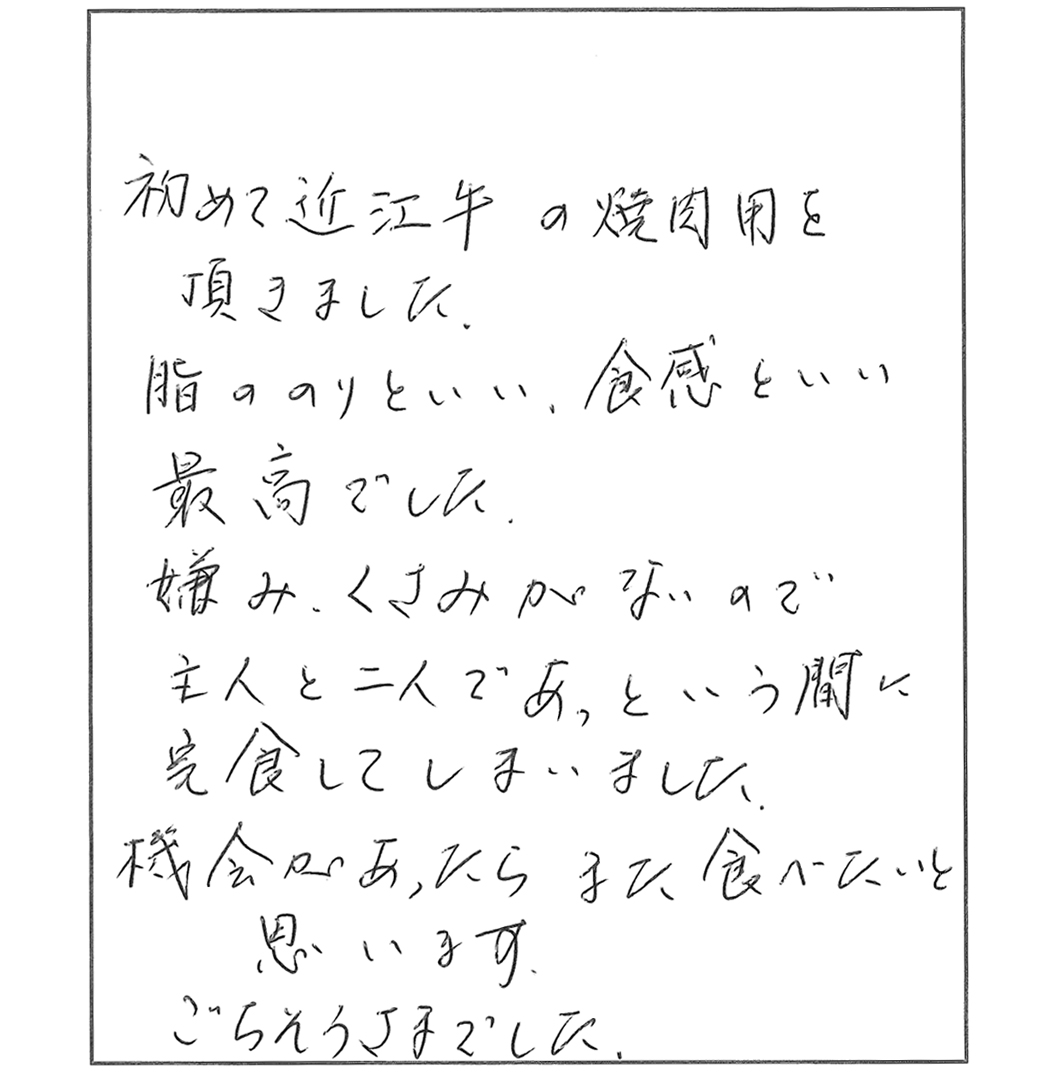 初めて近江牛の焼肉用を
頂きました.
脂ののりといい、食感といい
最高でした.
嫌み、くさみがないので
主人と二人であっという間に
完食してしまいました.
機会があったらまた食べたいと
思います.
ごちそうさまでした.